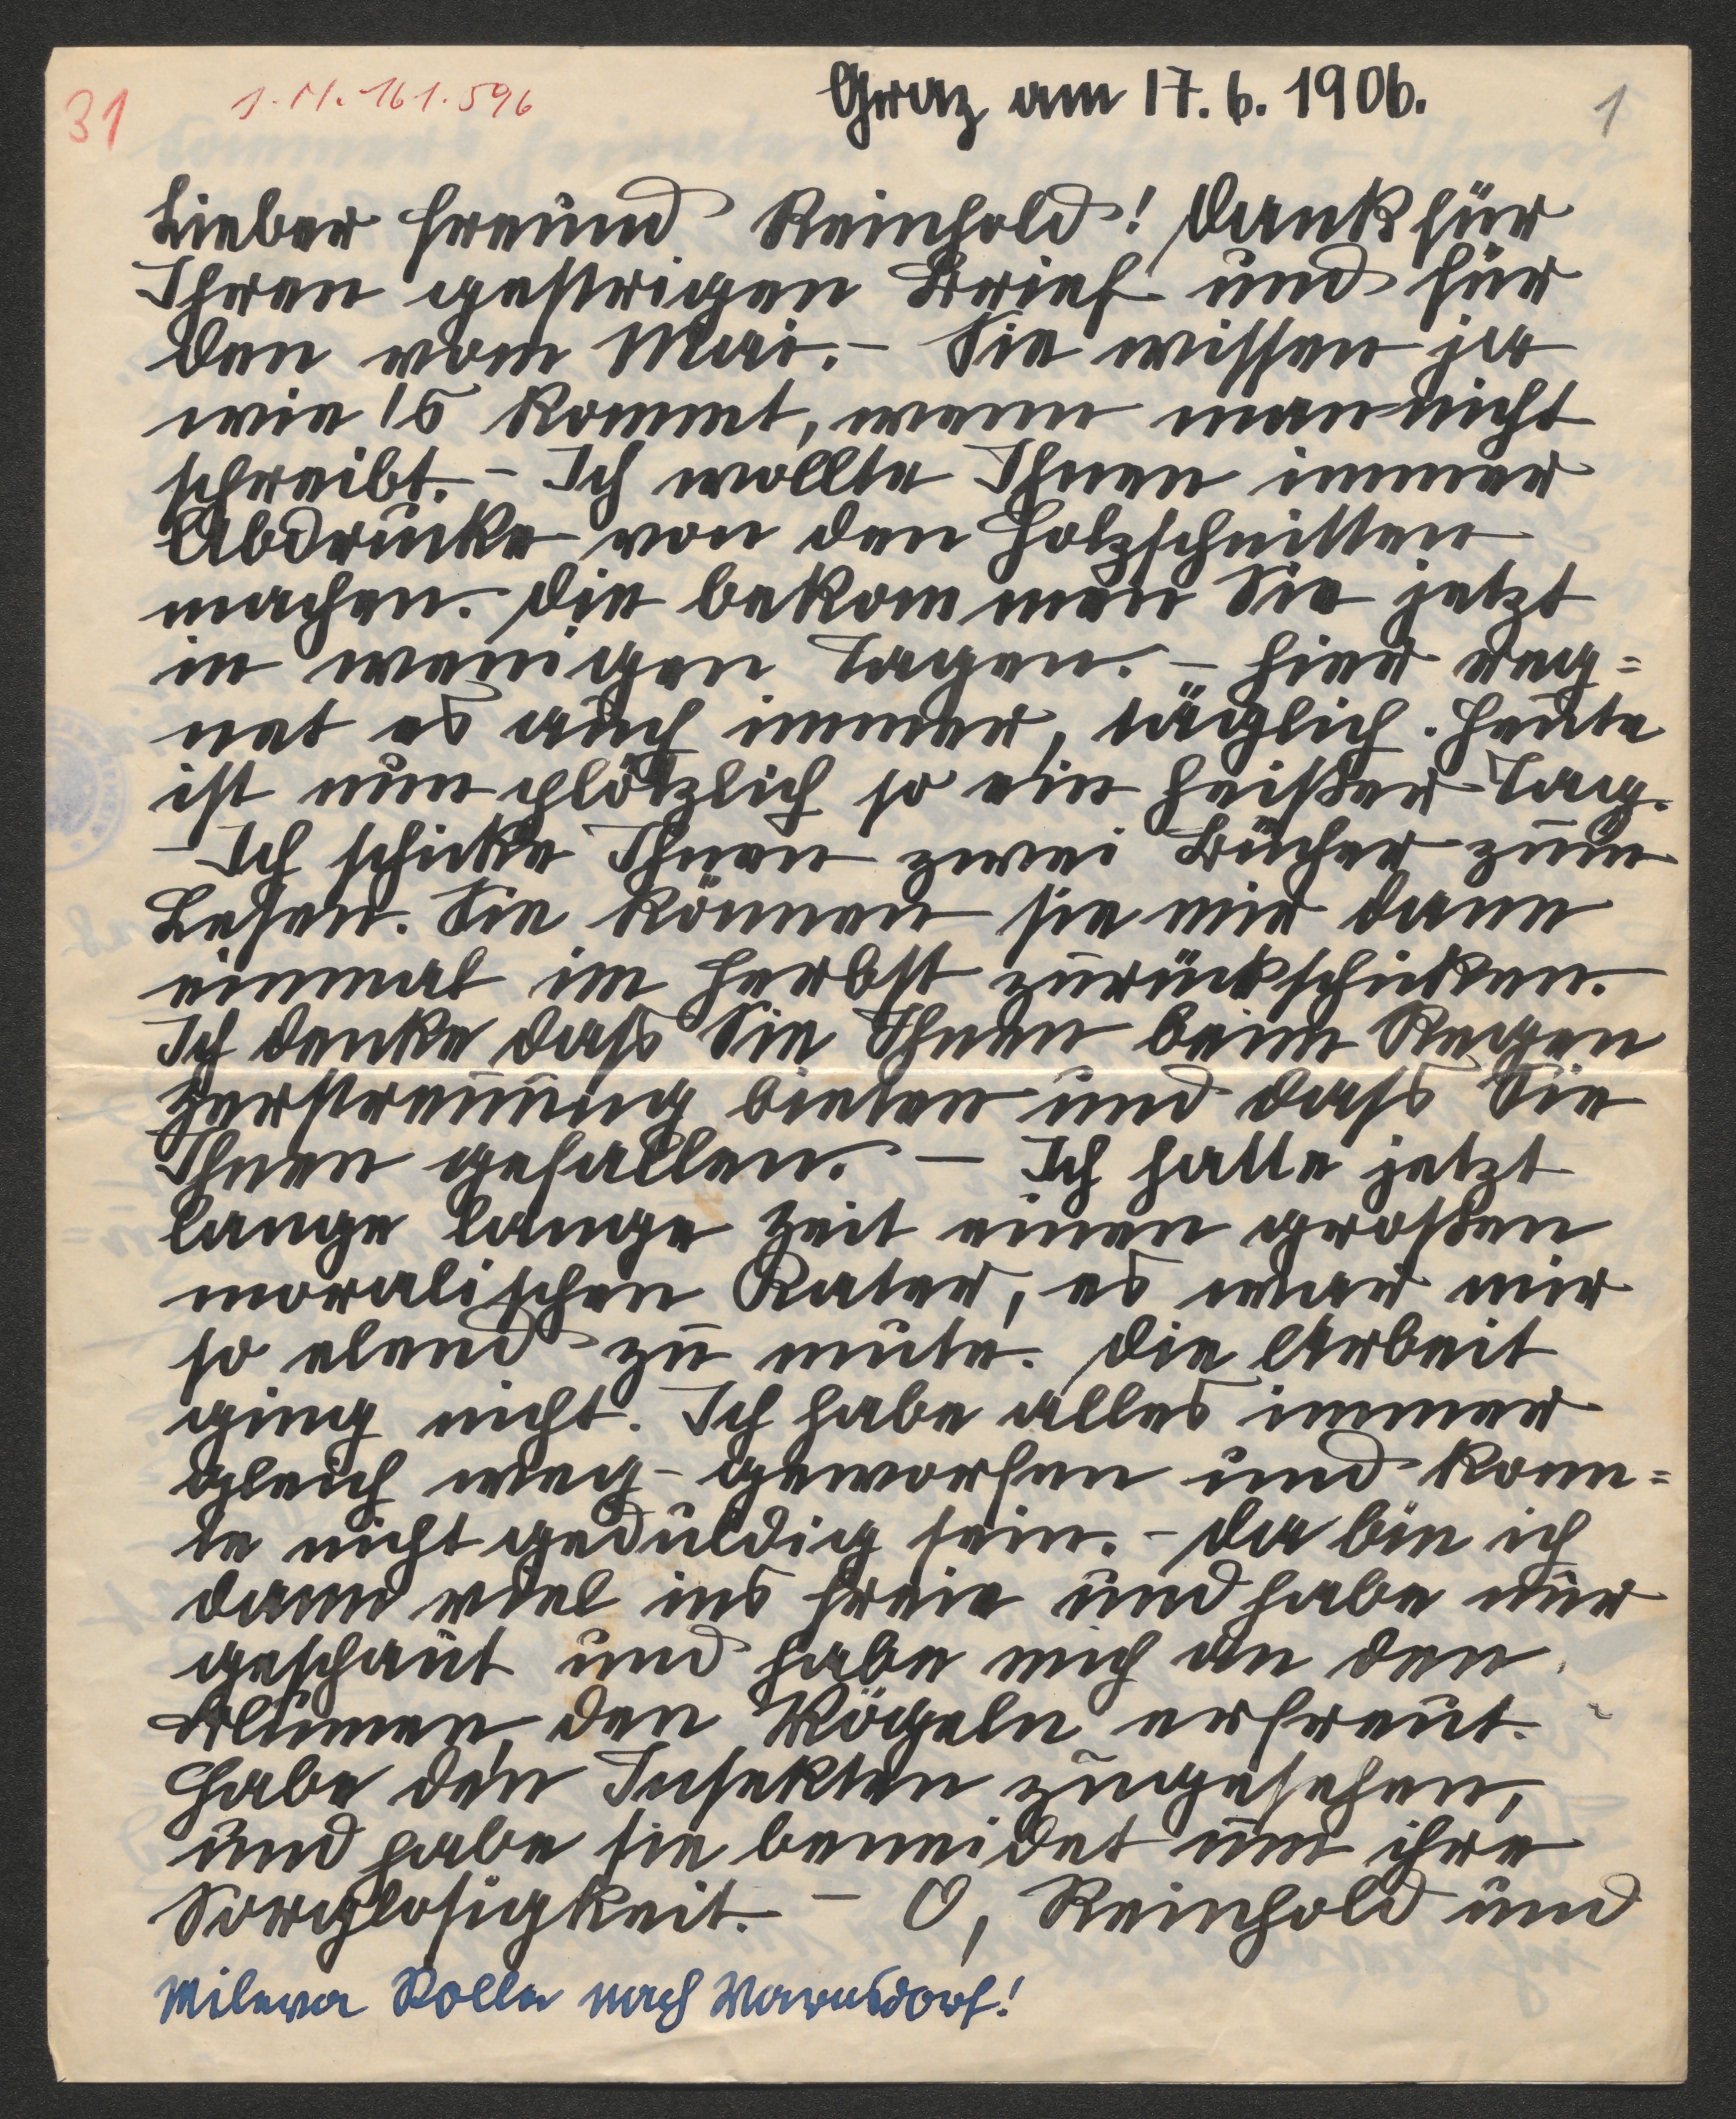 31
J.N. 161.596
Graz am 17.6.1906.
1
Lieber Freund Reinhold! Dank für
Ihren gestrigen Brief und für
den vom Mai. – Sie wissen ja
wie 's kommt, wenn man nicht
schreibt. – Ich wollte Ihnen immer
Abdrücke von den Holzschnitten
machen. Die bekommen Sie jetzt
in wenigen Tagen. – Hier reg=
net es auch immer, täglich. Heute
ist nun plötzlich so ein heißer Tag.
– Ich schicke Ihnen zwei Bücher zum
Lesen. Sie können sie mir dann
einmal im Herbst zurückschicken.
Ich denke dass Sie Ihnen beim Regen
Zerstreuung bieten und dass Sie
Ihnen gefallen. – Ich hatte jetzt
lange lange Zeit einen großen
moralischen Kater, es war mir
so elend zu mute. Die Arbeit
ging nicht. Ich habe alles immer
gleich weg-geworfen und konn=
te nicht geduldig sein. – Da bin ich
dann viel ins freie und habe nur
geschaut und habe mich an den
Blumen, den Vögeln erfreut.
Habe den Insekten zugesehen,
und habe sie beneidet um ihre
Sorglosigkeit. – O, Reinhold und
Mileva Rolle nach Warnsdorf!